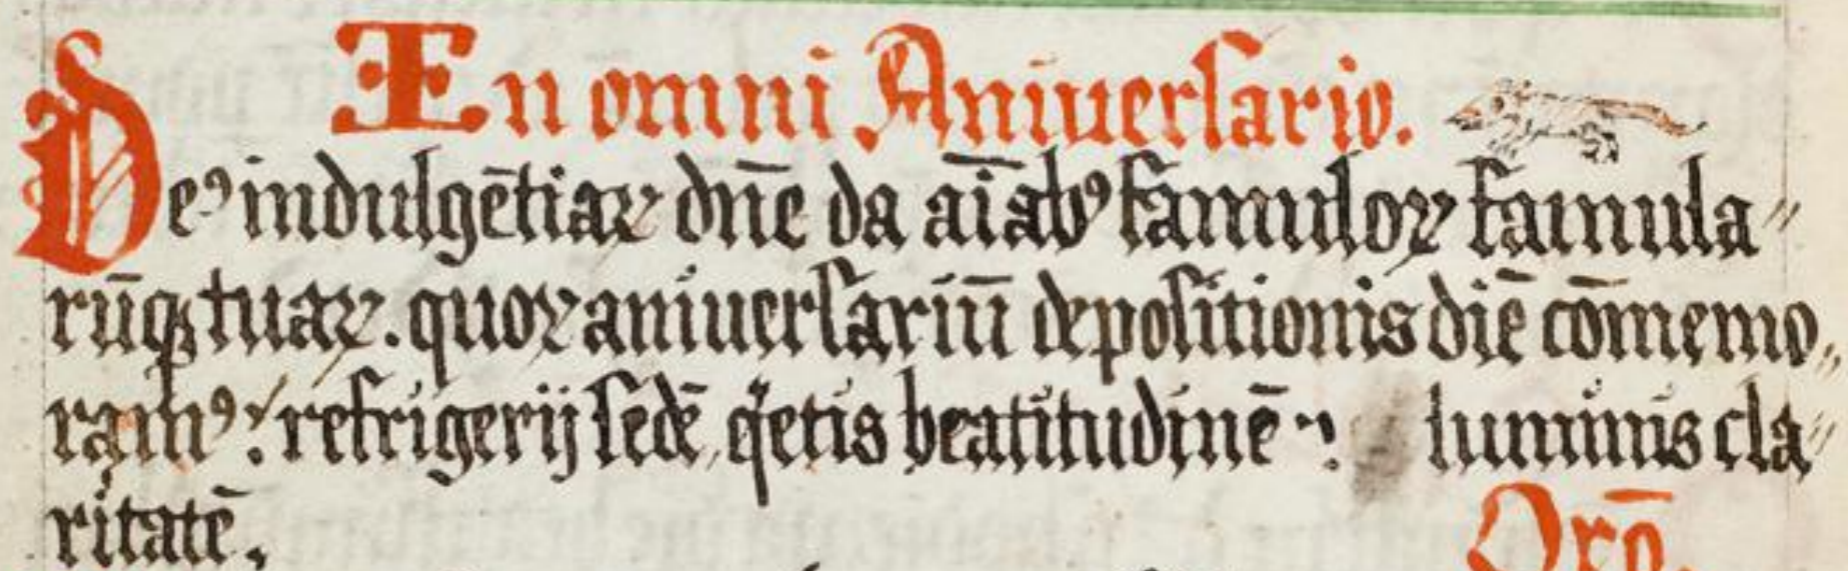 En omni Aniuersario.
De⁹ indulgētiaꝝ dn̄e da aīab⁹ famuloꝝ famula〃
rūqꝫ tuaꝝ. quoꝝ aniuersariū depositionis diē cōmemo〃
ram⁹: refrigerij sedē, qͥetis beatitudinē ⁊ luminis cla〃
ritatē.
Orō.